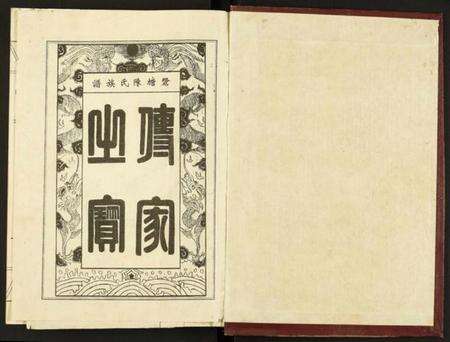 塘陳氏族譜
傳家
之寶